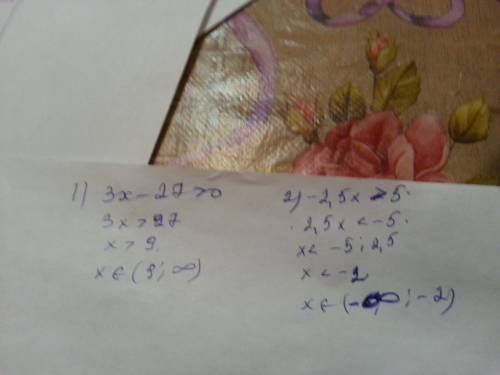 1) 3x - 27 > 0
3x > 27
x > 9.
x ∈ (9; ∞)
2) -2,5x > 5
2,5x < -5
x < -5 : 2,5
x < -2
x ∈ (-∞; -2)